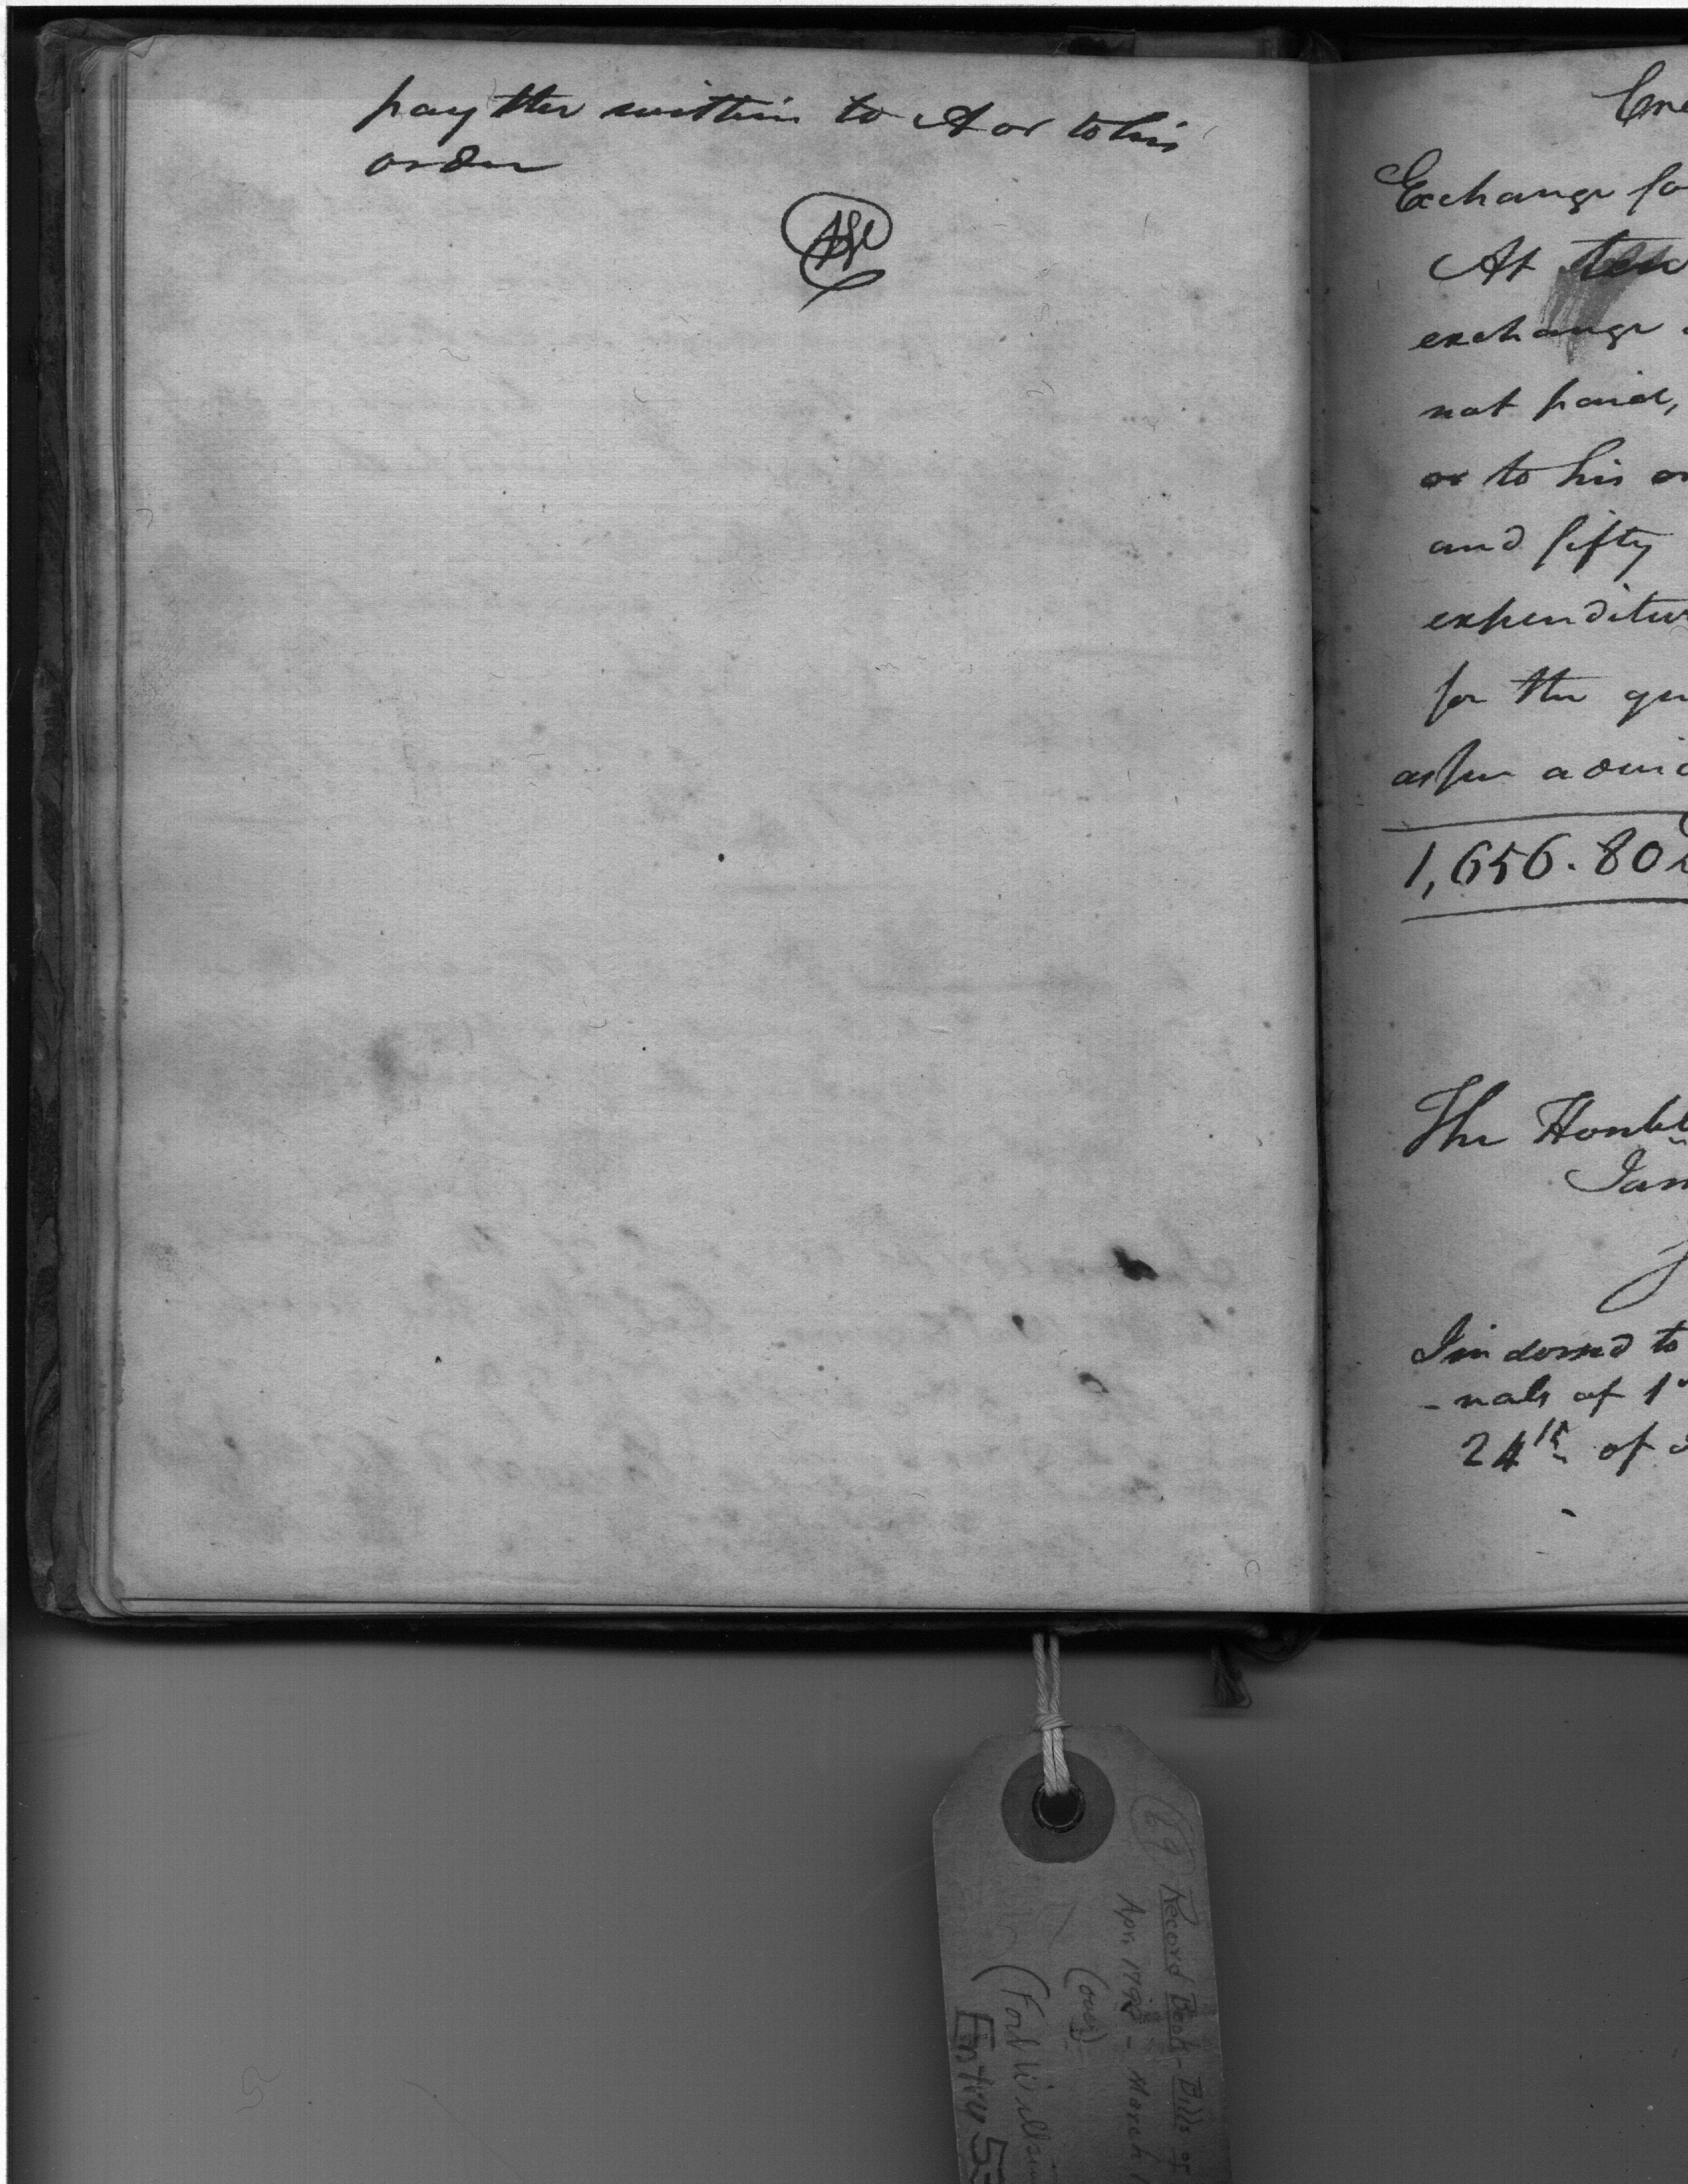 pay the within to A or to his
order
Exchange fo
At ten
exchange
not paid,
or to his or
and fifty
expenditur
for the qu
as per advic
1,656.80
The Honbl
Jam
I indorsed to
- nals of 1
24th of
69 Record Book - Bills of
Apr. 1798 - March 1
(over)
(Ford Willsi
Entry 53